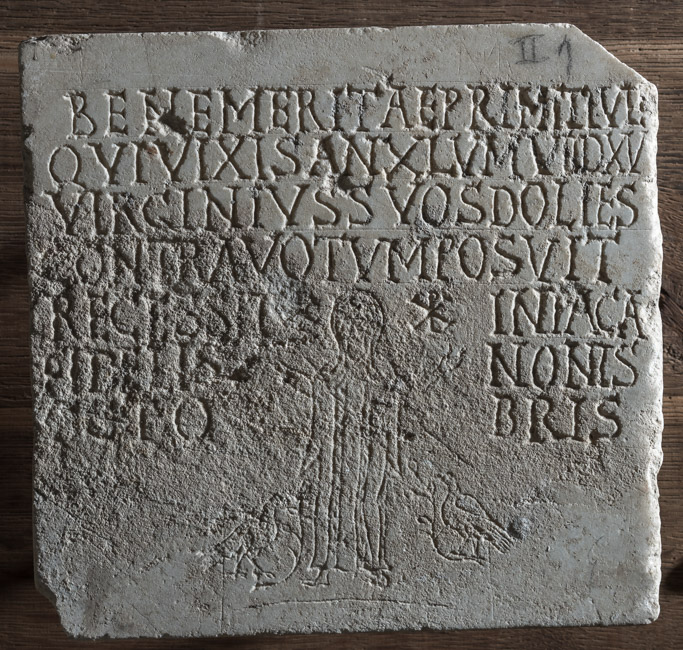 II 1
BENEMERITAEPRIMITIVE
QVIVIXISANXLVMVIIIDXV
VIRGINIVSSVOSDOLIES
CONTRAVOTVMPOSVIT
RECESSIT ☧ INPACA
FIDELIS NONIS
BRIS